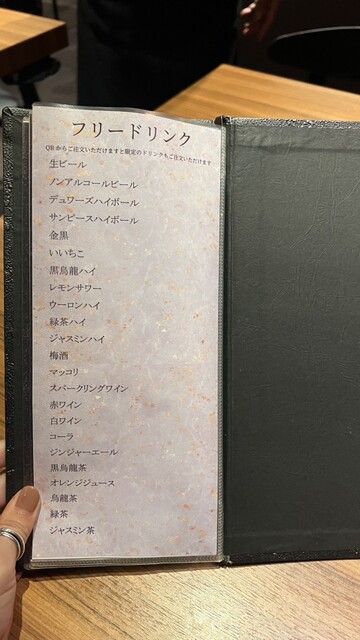 フリードリンク
QRからご注文いただけますと限定のドリンクもご注文いただけます
生ビール
ノンアルコールビール
デュワーズハイボール
サンピースハイボール
金黒
いいちこ
黒烏龍ハイ
レモンサワー
ウーロンハイ
緑茶ハイ
ジャスミンハイ
梅酒
マッコリ
スパークリングワイン
赤ワイン
白ワイン
コーラ
ジンジャーエール
黒烏龍茶
オレンジジュース
烏龍茶
緑茶
ジャスミン茶